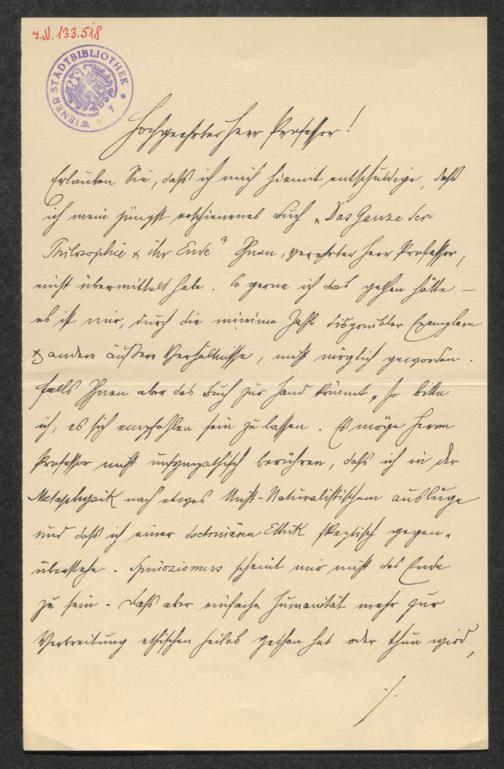 I.N. 133.518
WIENER STADTBIBLIOTHEK
Hochgeehrter Herr Professor!
Erlauben Sie, daß ich mich hiemit entschuldige, daß
ich mein jüngst erschienenes Buch „Das Ganze der
Philosophie & ihr Ende" Ihnen, geehrter Herr Professor,
nicht übermittelt habe. So gerne ich das gethan hätte –
es ist mir, durch die minime Zahl disponibler Exemplare
& andere äußere Verhältnisse, nicht möglich geworden.
Falls Ihnen aber das Buch zur Hand kömmt, so bitte
ich, es sich empfohlen sein zu lassen. Es möge Herrn
Professor nicht unsympathisch berühren, daß ich in der
Metaphysik nach etwas Nicht-Naturalistischem ausluge
und daß ich einer doctrinären Ethik skeptisch gegen-
überstehe. Spinozismus scheint mir nicht das Ende
zu sein. Daß aber einfache Humanität mehr zur
Verbreitung ethischen Heiles gethan hat oder thun wird,